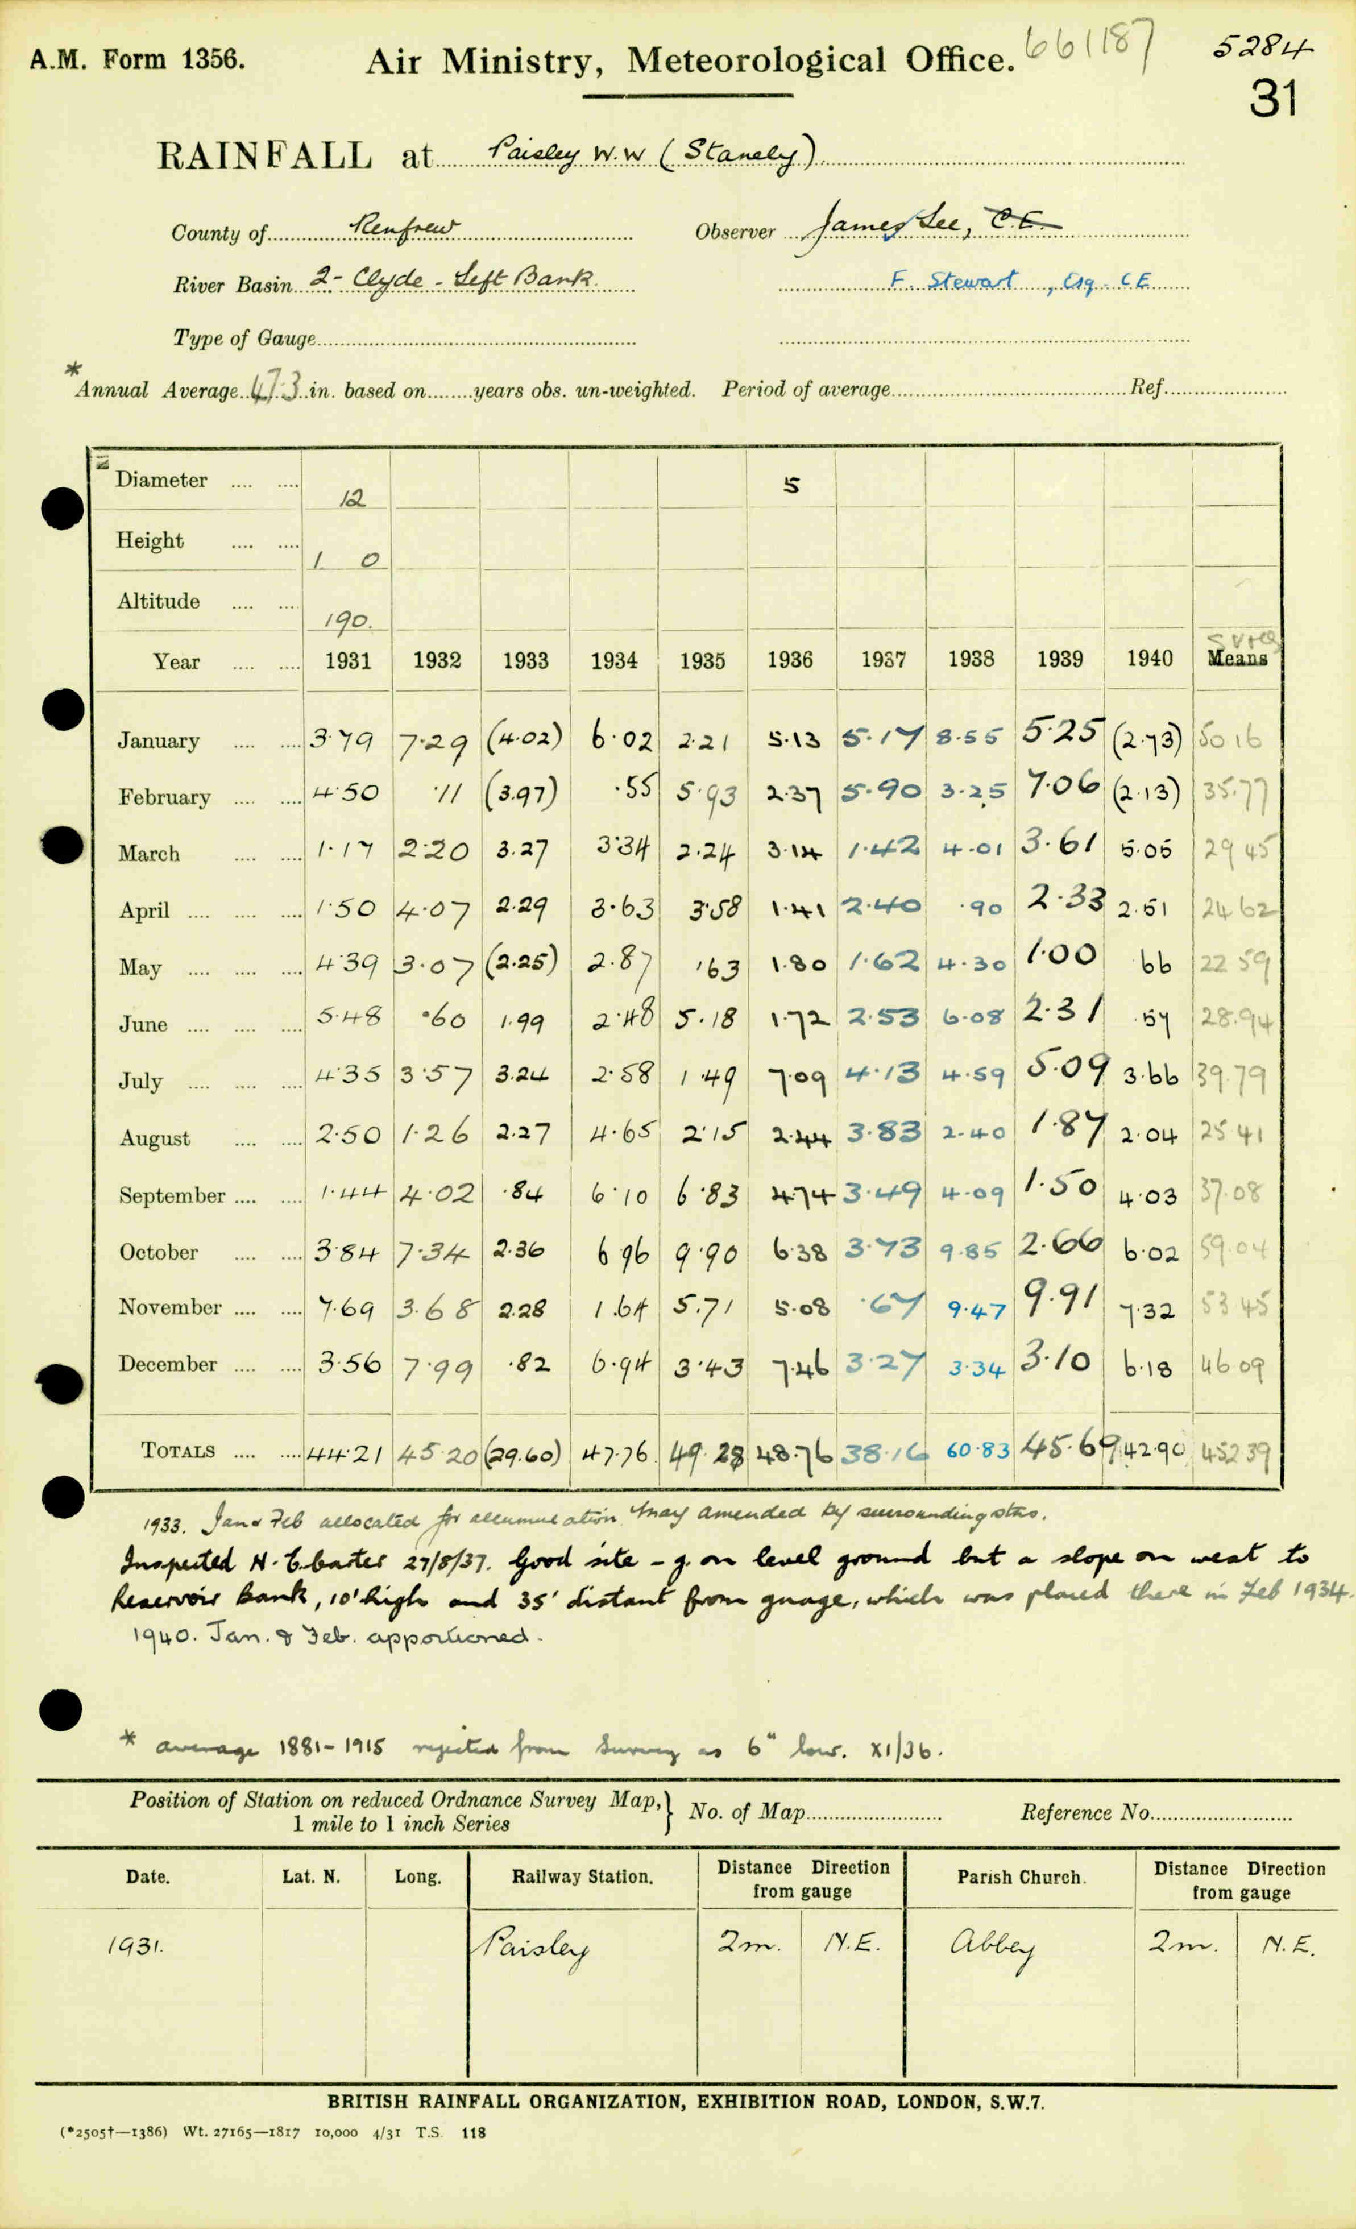 A.M. Form 1356. Air Ministry, Meteorological Office. 661187 5284
31
RAINFALL at Paisley W.W (Stanely)
County of Renfrew Observer James Lee, C.E.
River Basin 2- Clyde - Left Bank F. Stewart, Esq. CE
Type of Gauge
*Annual Average 47.3 in. based on years obs. un-weighted. Period of average Ref.
Diameter 12 5
Height 1 0
Altitude 190.
Year 1931 1932 1933 1934 1935 1936 1937 1938 1939 1940 Means
January 3.79 7.29 (4.02) 6.02 2.21 5.13 5.17 8.55 5.25 (2.73) 50 16
February 4.50 .11 (3.97) .55 5.93 2.37 5.90 3.25 7.06 (2.13) 35.77
March 1.17 2.20 3.27 3.34 2.24 3.14 1.42 4.01 3.61 5.05 29 45
April 1.50 4.07 2.29 3.63 3.58 1.41 2.40 .90 2.33 2.51 24 62
May 4.39 3.07 (2.25) 2.87 .63 1.80 1.62 4.30 1.00 66 22 59
June 5.48 .60 1.99 2.48 5.18 1.72 2.53 6.08 2.31 .57 28.94
July 4.35 3.57 3.24 2.58 1.49 7.09 4.13 4.59 5.09 3.66 39.79
August 2.50 1.26 2.27 4.65 2.15 2.44 3.83 2.40 1.87 2.04 25 41
September 1.44 4.02 .84 6.10 6.83 4.74 3.49 4.09 1.50 4.03 37.08
October 3.84 7.34 2.36 6 96 9.90 6.38 3.73 9.85 2.66 6.02 59.04
November 7.69 3.68 2.28 1.64 5.71 5.08 .67 9.47 9.91 7.32 53 45
December 3.56 7.99 .82 6.94 3.43 7.46 3.27 3.34 3.10 6.18 46 09
TOTALS 44.21 45.20 (29.60) 47.76 49.28 48.76 38.16 60.83 45.69 42.90 452 39
1933. Jan & Feb allocated for accumulation. May amended by surrounding stns.
Inspected 27/8/37. Good site - g. on level ground but a slope on west to
Reservoir bank, 10' high and 35' distant from guage, which was placed there in Feb 1934.
1940. Jan. & Feb. apportioned.
* average 1881-1915 rejected from Survey as 6" low. XI/36.
Position of Station on reduced Ordnance Survey Map, } No. of Map Reference No.
1 mile to 1 inch Series
Date. Lat. N. Long. Railway Station. Distance Direction from gauge Parish Church. Distance Direction from gauge
1931. Paisley 2m. N.E. Abbey 2m. N.E.
BRITISH RAINFALL ORGANIZATION, EXHIBITION ROAD, LONDON, S.W.7.
(*2505†—1386) Wt. 27165—1817 10,000 4/31 T.S. 118